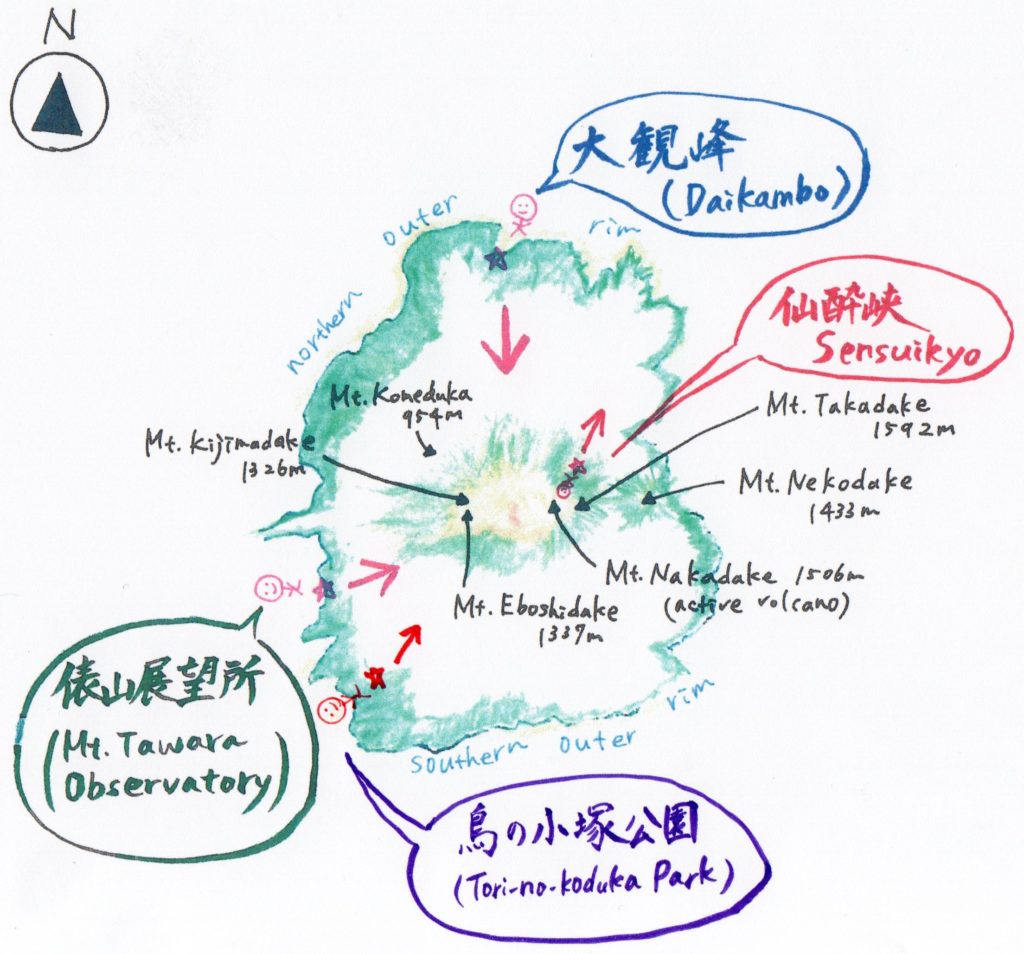 N
大観峰
(Daikambo)
outer
rim
northern
仙酔峡
Sensuikyo
Mt. Komeduka
954m
Mt. Takadake
1592m
Mt. Kijimadake
1326m
Mt. Nekodake
1433m
Mt. Nakadake 1506m
(active volcano)
Mt. Eboshidake
1337m
俵山展望所
(Mt. Tawara
Observatory)
southern outer
rim
鳥の小塚公園
(Tori-no-koduka Park)